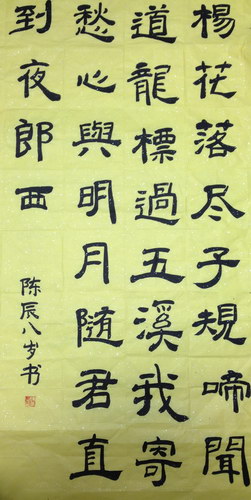 楊花落尽子規啼聞
道龍標過五溪我寄
愁心與明月随君直
到夜郎西
陈辰八岁书